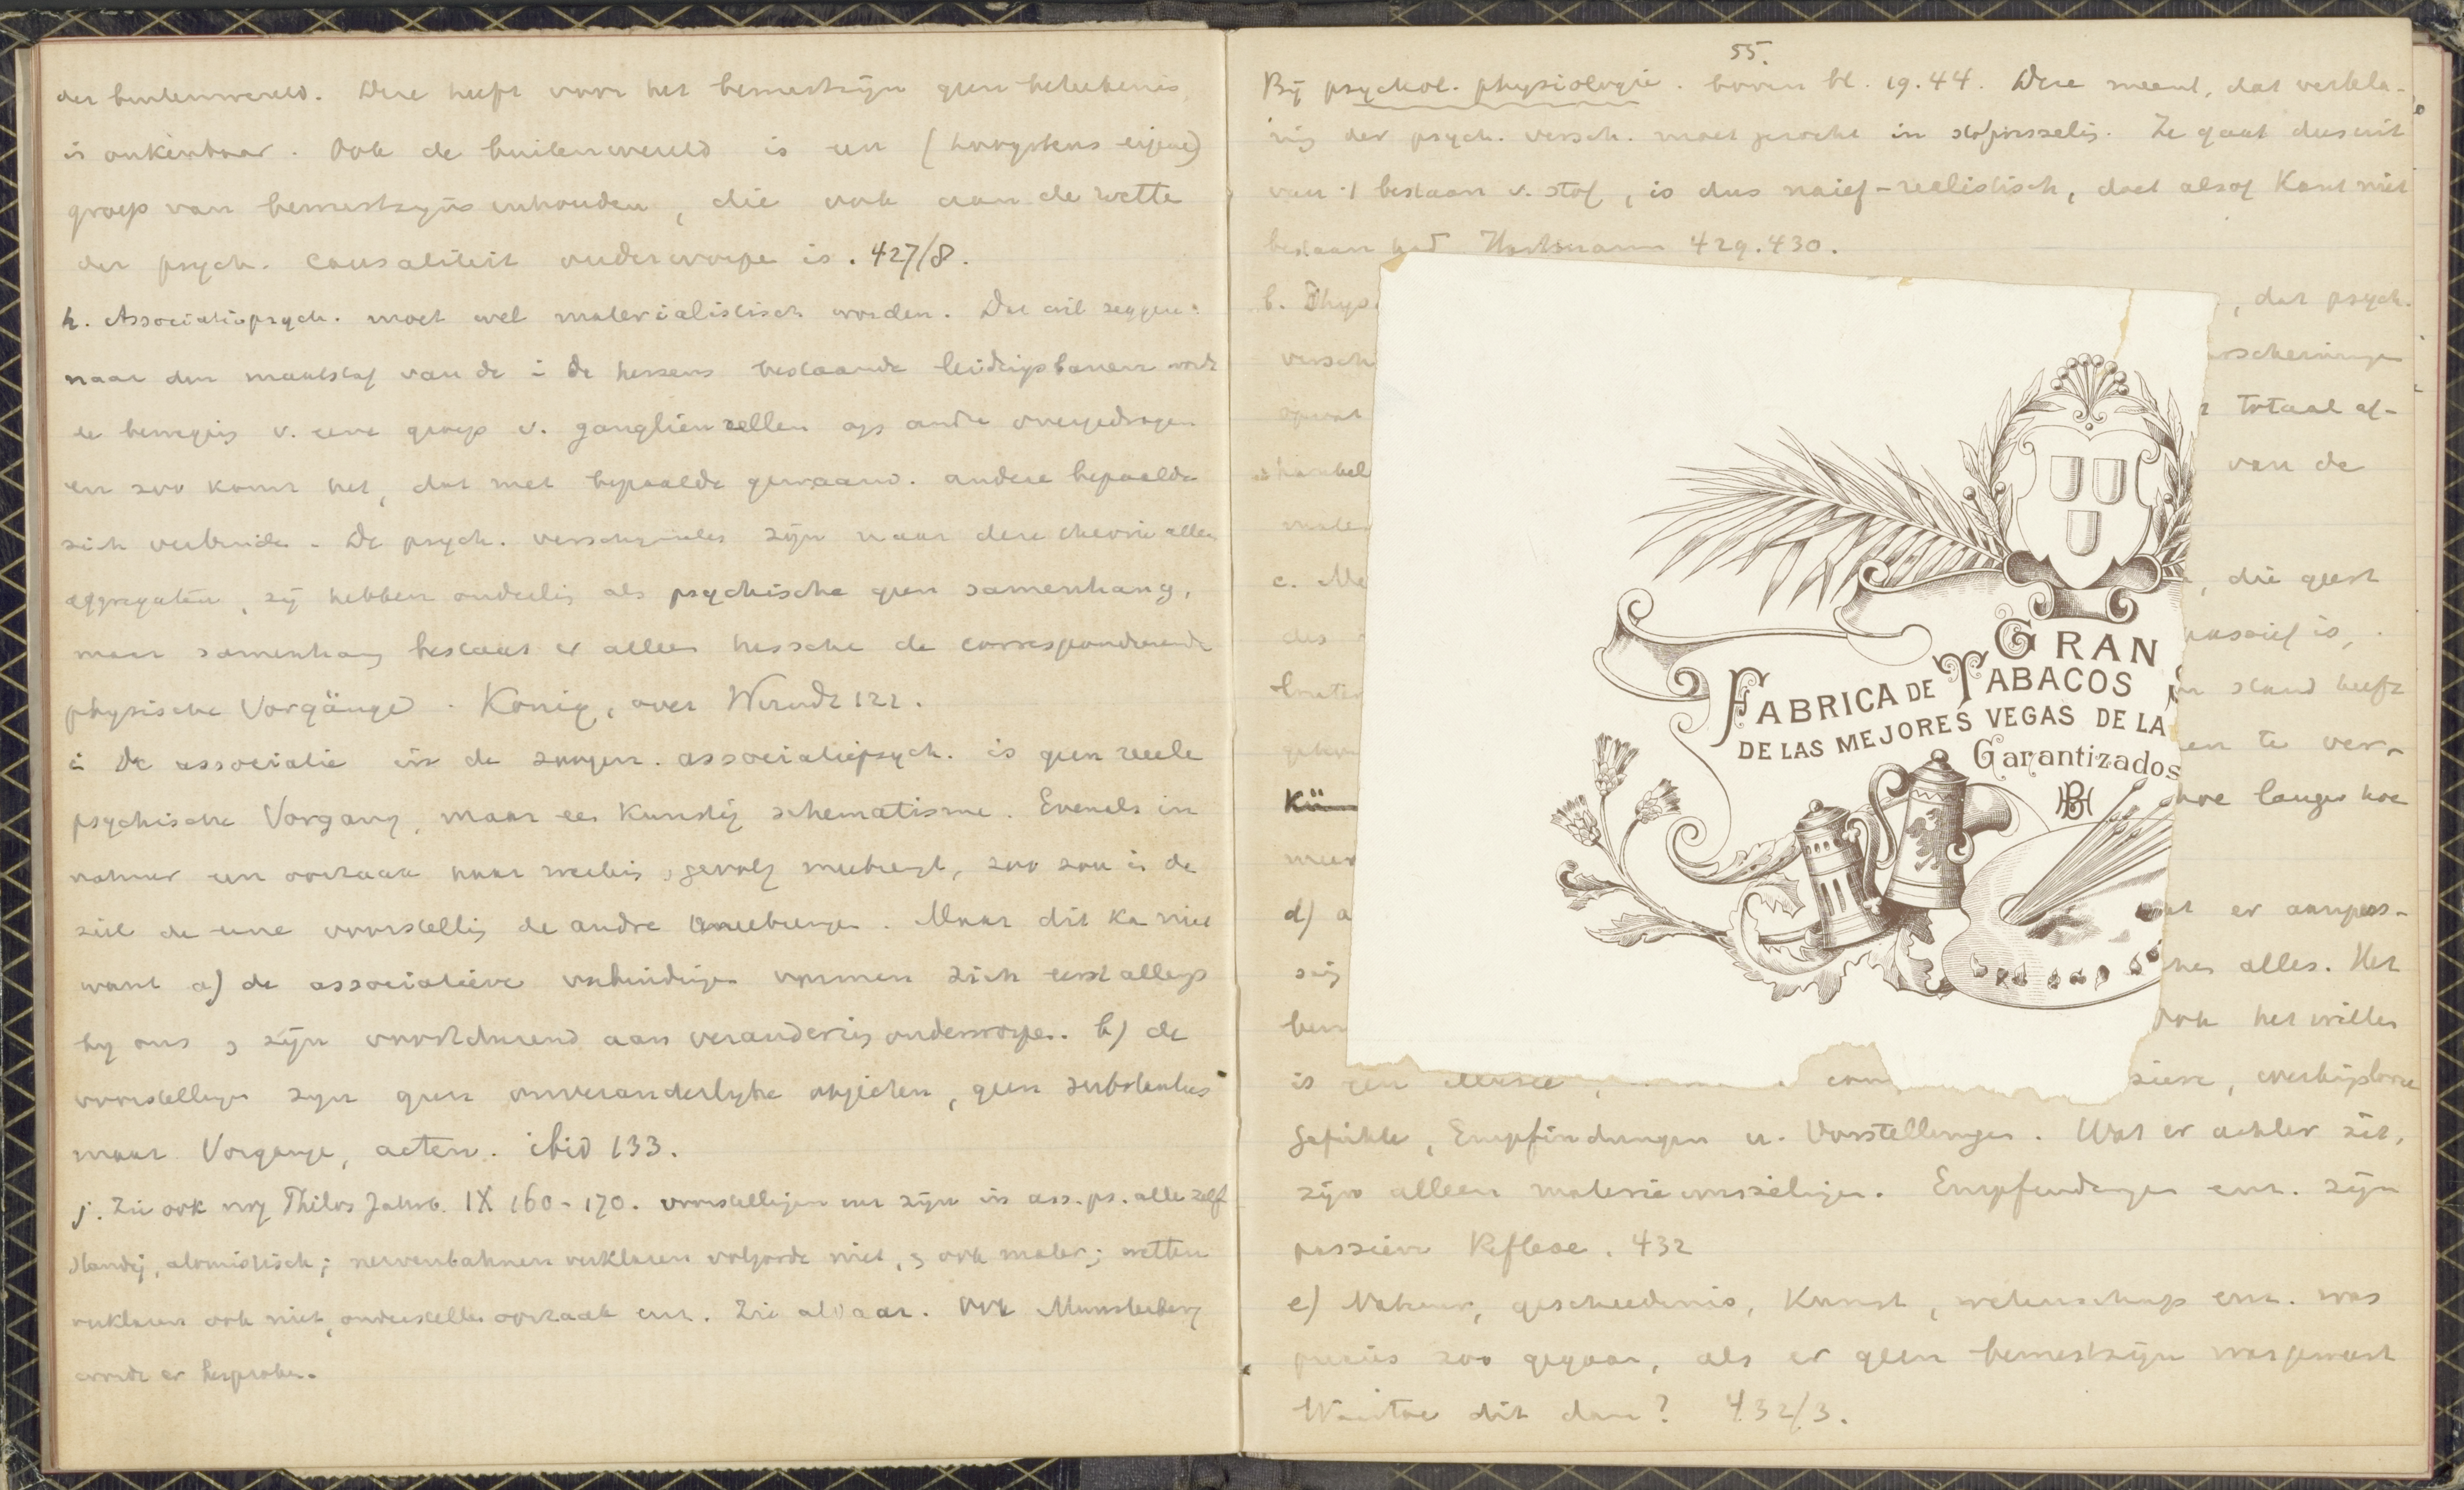 der buitenwereld. Deze heeft voor het bewustzijn geen beteekenis,
is onkenbaar. Ook de buitenwereld is een (hoogstens eigene)
groep van bewustzijnsinhouden, die ook aan de wette
der psych. causaliteit onderworpe is. 427/8.
h. Associatiepsych. moet wel materialistisch worden. Dat wil zeggen:
naar den maatstaf van de i de hersens bestaande leidingsbanen wordt
de beweging v. eene groep v. ganglienzellen op andre overgedragen
en zoo komt het, dat met bepaalde gewaarw. andere bepaalde
zich verbinde. De psych. verschijnseles zijn naar deze theorie alleen
aggregaten, zij hebben onderling als psychische geen samenhang,
maar samenhang bestaat er alleen tussche de correspondeerende
physische Vorgänge. König, over Wundt 122.
i De associatie in de zoogen. associatiepsych. is geen reele
psychische Vorgang, maar een kunstig schematisme. Evenals in
natuur een oorzaak haar gevolg meebrengt, zoo zou in de
ziel de eene voorstelling de andre meebrenge. Maar dit ka niet
want a) de associatieve verbindinge vormen zich eerst allengs
bij ons, zijn voortdurend aan verandering onderworpe. b) de
voorstellinge zijn geen onveranderlyke objecten, geen substanties
maar Vorgange, acten. ibid 133.
j. Zie ook nog Philos Jahrb. IX 160-170. voorstellingen enz zijn in ass. ps. alle zelf
standig, atomistisch; nervenbahnen verklaren volgorde niet, ook mater; wetten
verklaren ook niet, onderstelle oorzaak enz. Zie aldaar. Ook Munsterberg
wordt er besproken.
55.
Bij psychol. physiologie. boven bl. 19.44. Deze meent, dat verkla-
ring der psych. versch. moet gezocht in stofwisseling. Ze gaat dus uit
van 't bestaan v. stof, is dus naief-realistisch, doet alsof Kant niet
bestaan had Hartmann 429.430.
b. Phys , dat psych.
versch rscheininge
opvat totaal af-
hankel van de
mater
c. Me , die geest
des passief is,
stand heeft
en te ver-
Kü hoe langer hoe
meer
d) a er aanpas-
sing alles. Het
bew Ook het willen
is geen
Gefühle, Empfindungen u. Vorstellunge. Wat er achter zit,
zijn alleen materie wisselinge. Empfindunge enz. zijn
passieve Reflexe. 432
e) Natuur, geschiedenis, Kunst, wetenschap enz. was
precies zoo gegaan, als er geen bewustzijn was geweest
Waartoe dit dan? 432/3.
GRAN
FABRICA DE TABACOS
DE LAS MEJORES VEGAS DE LA
Garantizados
HB